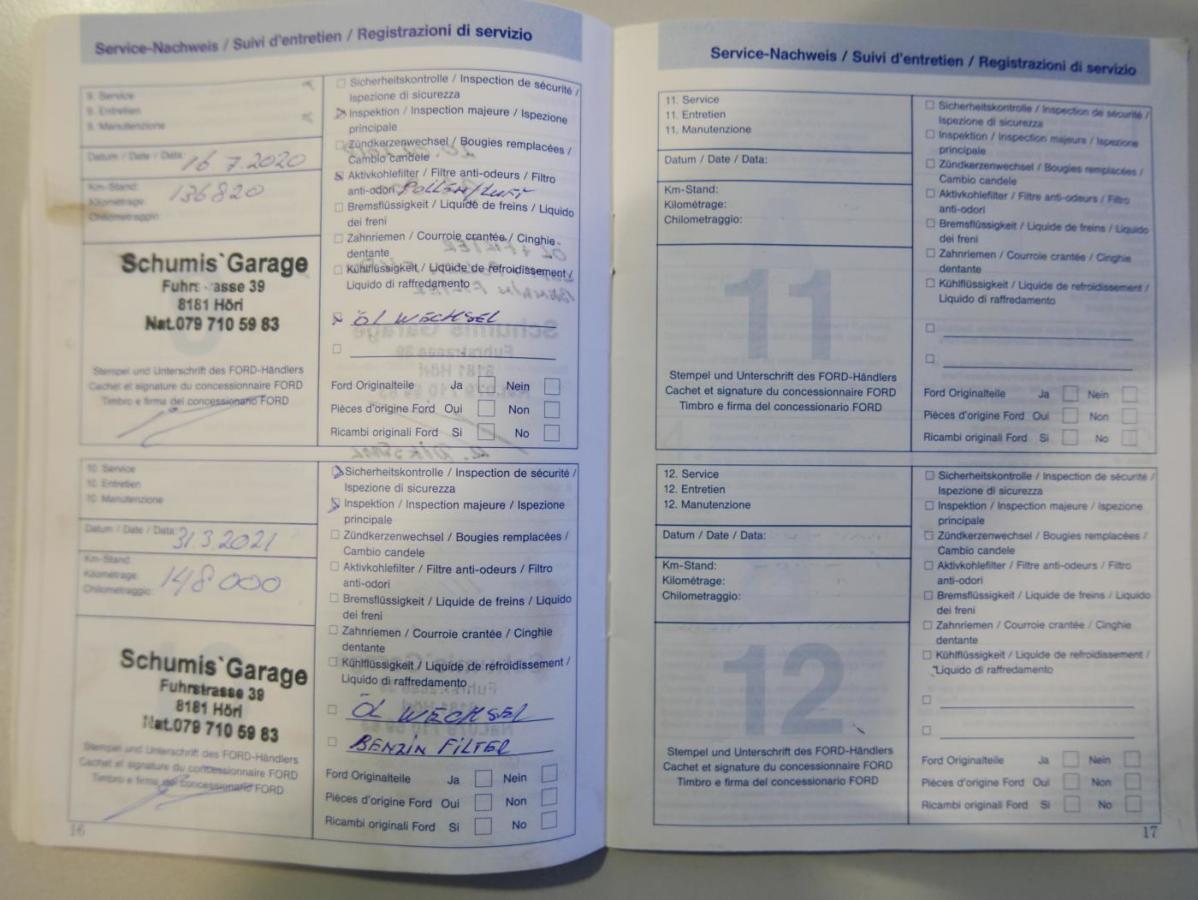 Service-Nachweis / Suivi d'entretien / Registrazioni di servizio
9. Service
9. Entretien
9. Manutenzione
Datum / Date / Data: 16.7.2020
Km-Stand:
Kilométrage: 136820
Chilometraggio:
Schumis`Garage
Fuhrstrasse 39
8181 Höri
Nat.079 710 59 83
Stempel und Unterschrift des FORD-Händlers
Cachet et signature du concessionnaire FORD
Timbro e firma del concessionario FORD
Sicherheitskontrolle / Inspection de sécurité /
Ispezione di sicurezza
Inspektion / Inspection majeure / Ispezione
principale
Zündkerzenwechsel / Bougies remplacées /
Cambio candele
Aktivkohlefilter / Filtre anti-odeurs / Filtro
anti-odori POLLEN/LUFT
Bremsflüssigkeit / Liquide de freins / Liquido
dei freni
Zahnriemen / Courroie crantée / Cinghie
dentante
Kühlflüssigkeit / Liquide de refroidissement /
Liquido di raffredamento
ÖL WECHSEL
Ford Originalteile Ja Nein
Pièces d'origine Ford Oui Non
Ricambi originali Ford Si No
10. Service
10. Entretien
10. Manutenzione
Datum / Date / Data: 31.3.2021
Km-Stand:
Kilométrage: 148000
Chilometraggio:
Schumis`Garage
Fuhrstrasse 39
8181 Höri
Nat.079 710 59 83
Stempel und Unterschrift des FORD-Händlers
Cachet et signature du concessionnaire FORD
Timbro e firma del concessionario FORD
Sicherheitskontrolle / Inspection de sécurité /
Ispezione di sicurezza
Inspektion / Inspection majeure / Ispezione
principale
Zündkerzenwechsel / Bougies remplacées /
Cambio candele
Aktivkohlefilter / Filtre anti-odeurs / Filtro
anti-odori
Bremsflüssigkeit / Liquide de freins / Liquido
dei freni
Zahnriemen / Courroie crantée / Cinghie
dentante
Kühlflüssigkeit / Liquide de refroidissement /
Liquido di raffredamento
ÖL WECHSEL
BENZIN FILTER
Ford Originalteile Ja Nein
Pièces d'origine Ford Oui Non
Ricambi originali Ford Si No
16
Service-Nachweis / Suivi d'entretien / Registrazioni di servizio
11. Service
11. Entretien
11. Manutenzione
Datum / Date / Data:
Km-Stand:
Kilométrage:
Chilometraggio:
11
Stempel und Unterschrift des FORD-Händlers
Cachet et signature du concessionnaire FORD
Timbro e firma del concessionario FORD
Sicherheitskontrolle / Inspection de sécurité /
Ispezione di sicurezza
Inspektion / Inspection majeure / Ispezione
principale
Zündkerzenwechsel / Bougies remplacées /
Cambio candele
Aktivkohlefilter / Filtre anti-odeurs / Filtro
anti-odori
Bremsflüssigkeit / Liquide de freins / Liquido
dei freni
Zahnriemen / Courroie crantée / Cinghie
dentante
Kühlflüssigkeit / Liquide de refroidissement /
Liquido di raffredamento
Ford Originalteile Ja Nein
Pièces d'origine Ford Oui Non
Ricambi originali Ford Si No
12. Service
12. Entretien
12. Manutenzione
Datum / Date / Data:
Km-Stand:
Kilométrage:
Chilometraggio:
12
Stempel und Unterschrift des FORD-Händlers
Cachet et signature du concessionnaire FORD
Timbro e firma del concessionario FORD
Sicherheitskontrolle / Inspection de sécurité /
Ispezione di sicurezza
Inspektion / Inspection majeure / Ispezione
principale
Zündkerzenwechsel / Bougies remplacées /
Cambio candele
Aktivkohlefilter / Filtre anti-odeurs / Filtro
anti-odori
Bremsflüssigkeit / Liquide de freins / Liquido
dei freni
Zahnriemen / Courroie crantée / Cinghie
dentante
Kühlflüssigkeit / Liquide de refroidissement /
Liquido di raffredamento
Ford Originalteile Ja Nein
Pièces d'origine Ford Oui Non
Ricambi originali Ford Si No
17